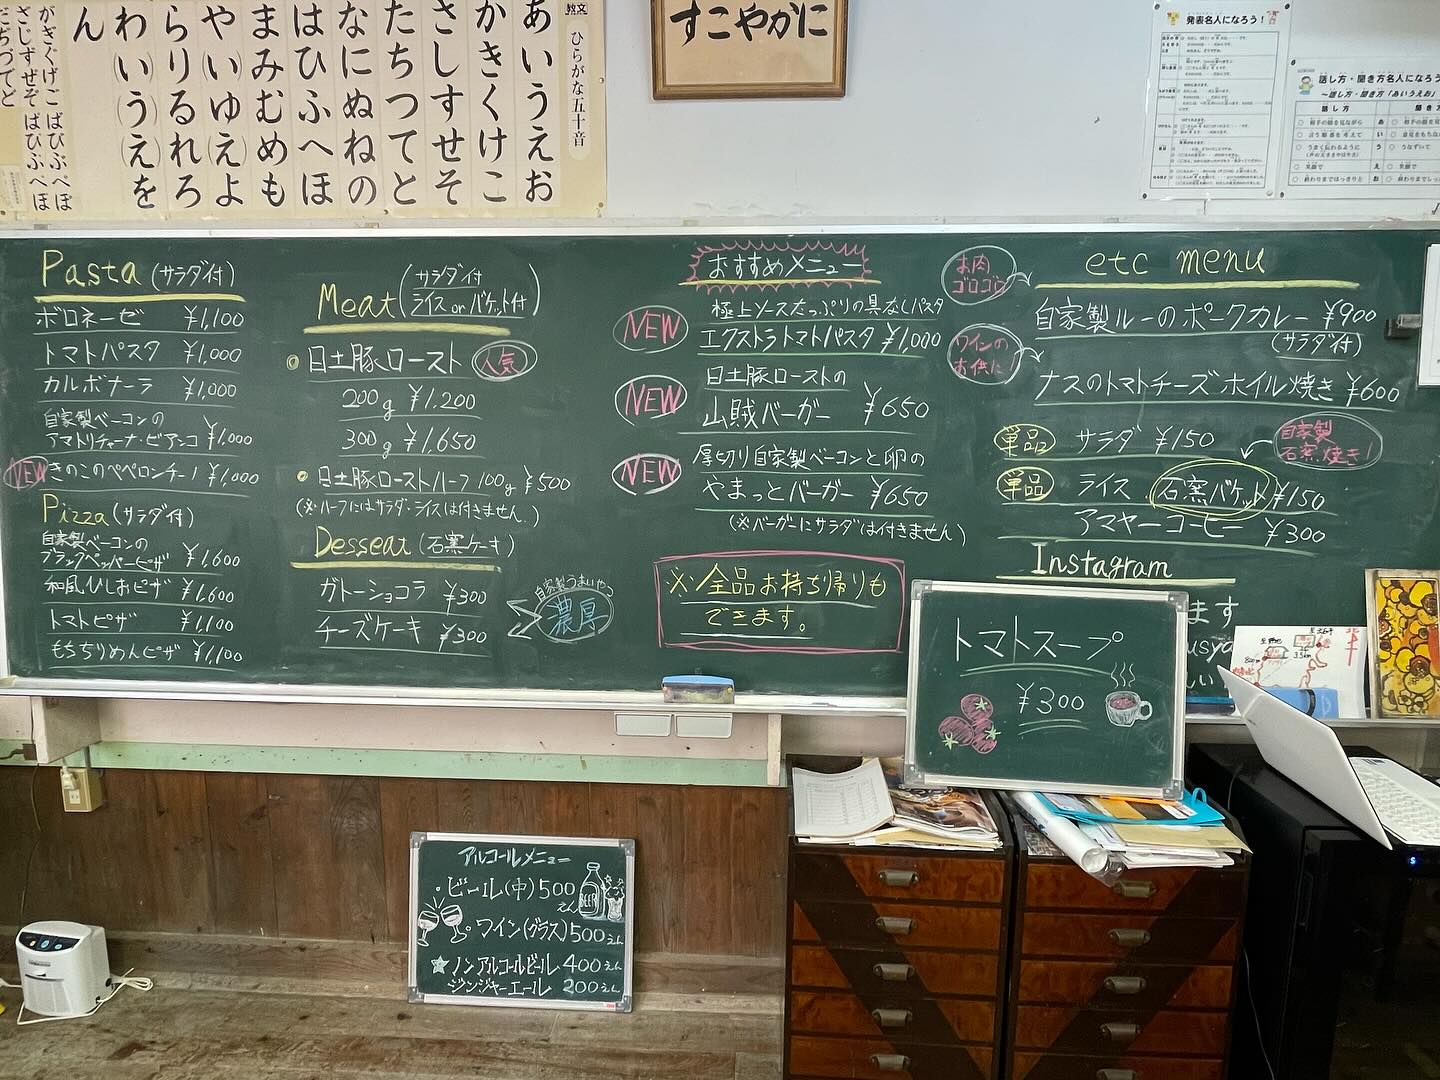 教文
ひらがな五十音
あいうえお
かきくけこ
さしすせそ
たちつてと
なにぬねの
はひふへほ
まみむめも
や(い)ゆ(え)よ
らりるれろ
わ(い)(う)(え)を
ん
がぎぐげご ばびぶべぼ
ざじずぜぞ ぱぴぷぺぽ
だぢづでど
すこやかに
発表名人になろう！
話し方・聞き方名人になろう
～話し方・聞き方「あいうえお」
話し方
相手の顔を見ながら
言う順番を考えて
うまく伝わるように
笑顔で
終わりまではっきりと
あ
い
う
え
お
うなずいて
笑顔で
Pasta (サラダ付)
ボロネーゼ ¥1,100
トマトパスタ ¥1,000
カルボナーラ ¥1,000
自家製ベーコンの
アマトリチャーナ・ビアンコ ¥1,000
NEW きのこのペペロンチーノ ¥1,000
Pizza (サラダ付)
自家製ベーコンの
ブラックペッパーピザ ¥1,600
和風ひしおピザ ¥1,600
トマトピザ ¥1,100
もちちりめんピザ ¥1,100
Meat (サラダ付
ライス or バケット付)
日土豚ロースト 人気
200g ¥1.200
300g ¥1,650
日土豚ローストハーフ 100g ¥500
(※ハーフにはサラダ・ライスは付きません。)
Desseat (石窯ケーキ)
ガトーショコラ ¥300
チーズケーキ ¥300
自家製うまいやつ
濃厚
おすすめメニュー
極上ソースたっぷりの具なしパスタ
NEW エクストラトマトパスタ ¥1,000
日土豚ローストの
NEW 山賊バーガー ¥650
厚切り自家製ベーコンと卵の
NEW やまっとバーガー ¥650
(※バーガーにサラダは付きません)
※全品お持ち帰りも
できます。
etc menu
お肉
ゴロゴロ
自家製ルーのポークカレー ¥900
(サラダ付)
ワインの
お供に！
ナスのトマトチーズホイル焼き ¥600
単品 サラダ ¥150
自家製
石窯焼き！
単品 ライス・石窯バケット ¥150
アマヤーコーヒー ¥300
Instagram
ます
トマトスープ
¥300
アルコールメニュー
・ビール(中)500えん
BEER
ワイン(グラス)500えん
★ノンアルコールビール 400えん
ジンジャーエール 200えん